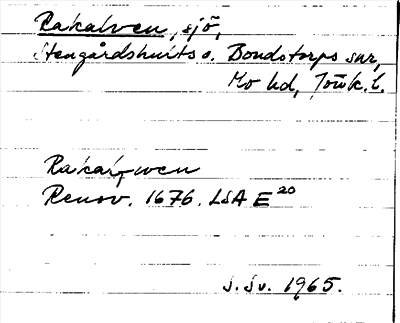 Rakalven, sjö,
Stengårdshults o. Bondstorps snr,
Mo hd, Jönk. l.
Rakalfwen
Renov. 1676. LSA E 20
J. Sv. 1965.